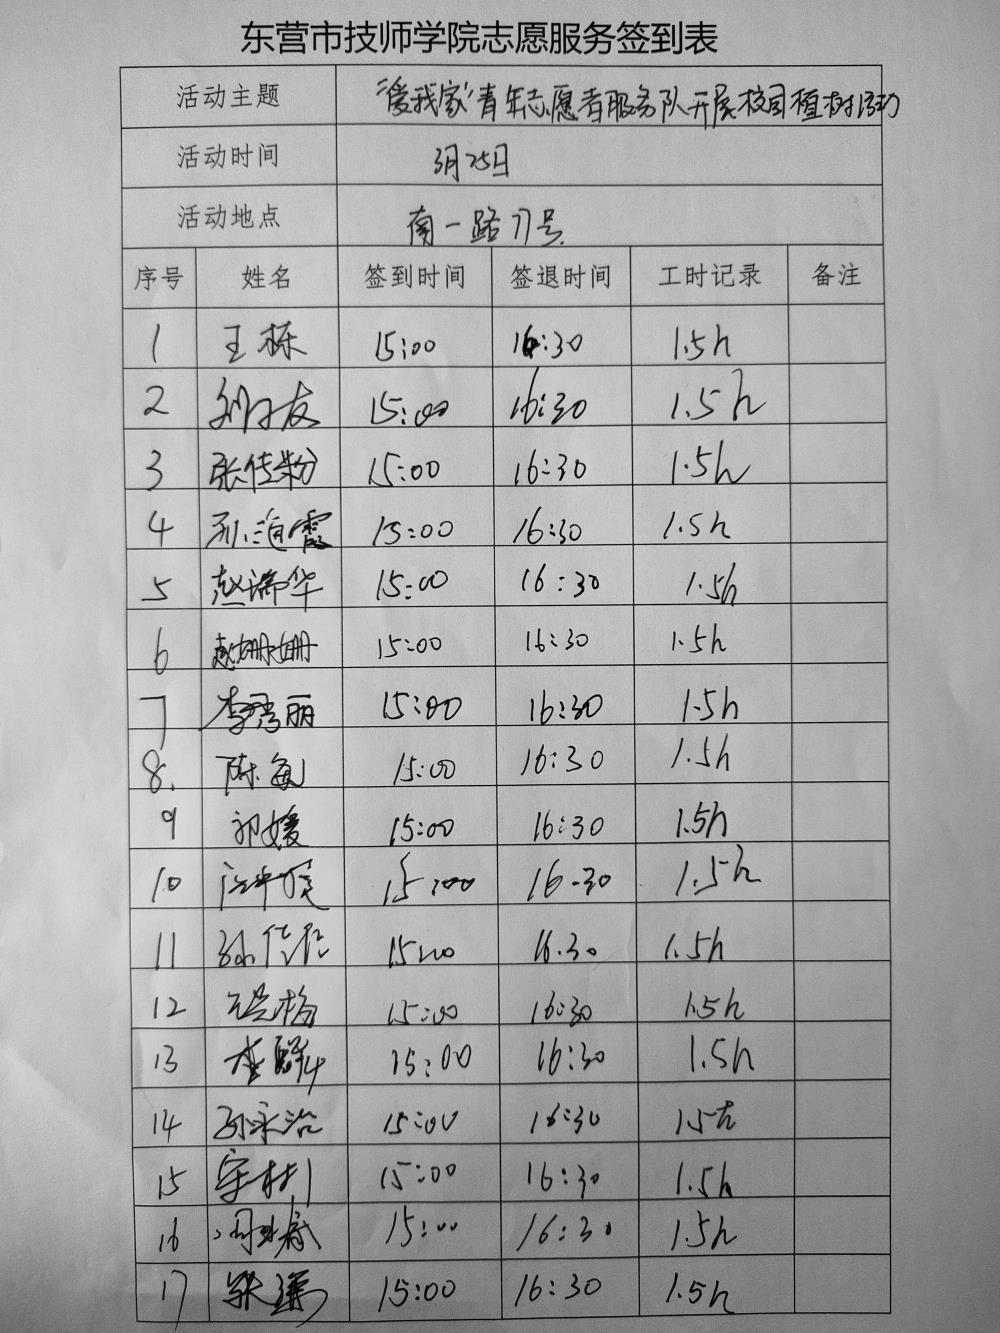 东营市技师学院志愿服务签到表
活动主题 "爱我家"青年志愿者服务队开展校园植树活动
活动时间 3月25日
活动地点 南一路77号
序号 姓名 签到时间 签退时间 工时记录 备注
1 王栋 15:00 16:30 1.5h
2 刘子友 15:00 16:30 1.5h
3 张佳粉 15:00 16:30 1.5h
4 孙海霞 15:00 16:30 1.5h
5 赵瑞华 15:00 16:30 1.5h
6 赵姗姗 15:00 16:30 1.5h
7 李秀丽 15:00 16:30 1.5h
8. 陈敏 15:00 16:30 1.5h
9 郭媛 15:00 16:30 1.5h
10 15:00 16-30 1.5h
11 孙 15:00 16.30 1.5h
12 15:00 16:30 1.5h
13 李 15:00 16:30 1.5h
14 孙永治 15:00 16:30 1.5h
15 宋 15:00 16:30 1.5h
16 15:00 16:30 1.5h
17 15:00 16:30 1.5h